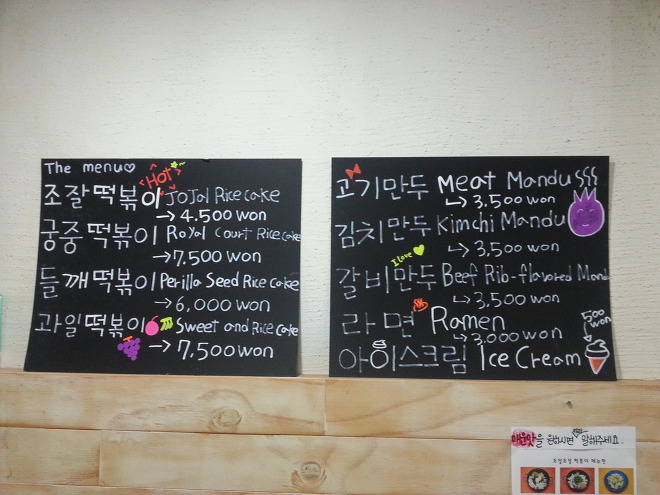 The menu♡
Hot
조잘떡볶이 JoJal Rice cake
→ 4.500 won
궁중떡볶이 Royal Court Rice cake
→ 7,500 won
들깨떡볶이 Perilla Seed Rice cake
→ 6,000 won
과일떡볶이 Sweet and Rice cake
→ 7,500 won
고기만두 Meat Mandu
↪ 3,500 won
김치만두 Kimchi Mandu
↪ 3,500 won
I love ♥
갈비만두 Beef Rib-flavored Mandu
↪ 3,500 won
라면 Ramen
↪ 3,000 won
500 won
아이스크림 Ice Cream
매운맛을 원하시면 말해주세요.